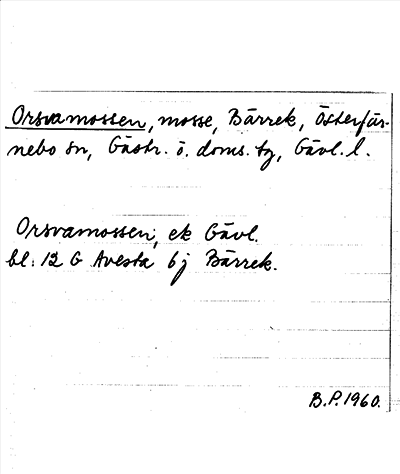 Orsvamossen, mosse, Bärrek, Österfär-
nebo sn, Gästr. ö. doms. tg, Gävl. l.
Orsvamossen, ek Gävl.
bl: 12 G Avesta bj Bärrek.
B.P. 1960.